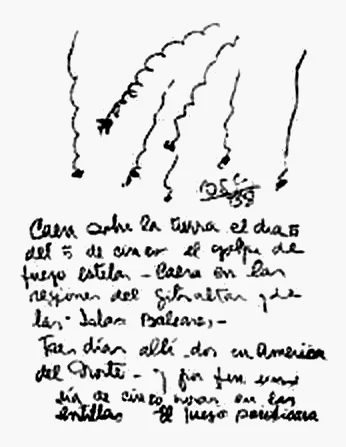 B.S.P.
38
Caera sobre la tierra el dia 5
del 5 de cinco el golpe de
fuego estelar - Caera en las
regiones del Gibraltar y de
las Islas Baleares -
Tres dias allí dos en America
del Norte - y por fin un
día de cinco horas en las
antillas El fuego